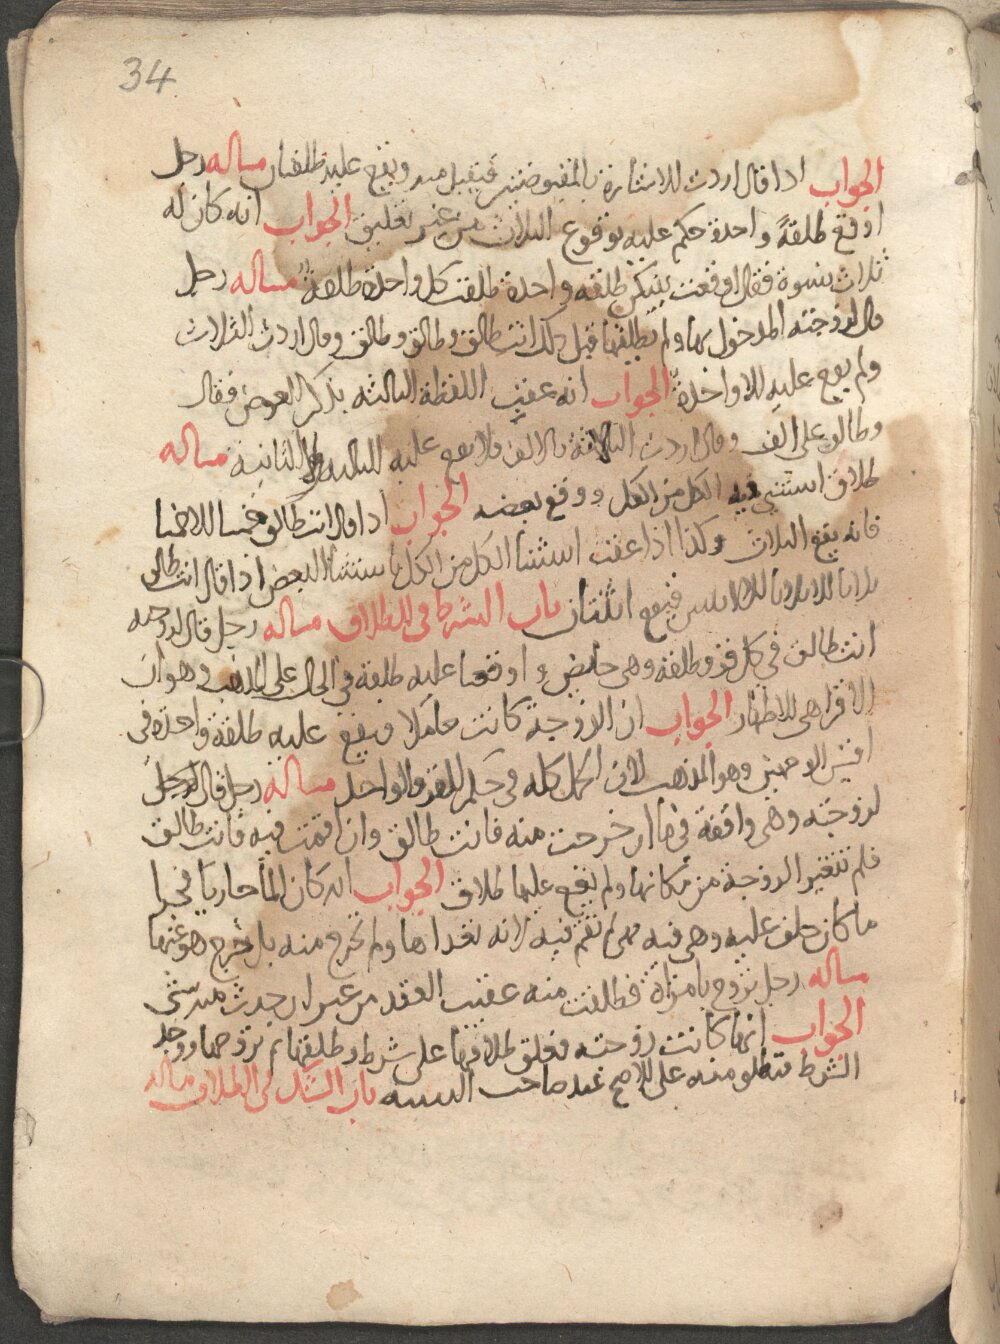 34
الجواب اذا قال اردت الاشارة بالمقبوضتين فيقبل منه ويقع عليه طلقتان مساله رجل
اوقع طلقةً واحدة حكم عليه بوقوع الثلاث من غير تعليق الجواب انه كان له
ثلاث نسوة فقال اوقعت بينكن طلقه واحدة طلقت كل واحدة طلقة مساله رجل
قال لزوجته المدخول بها ولم يطلقها قبل ذلك انت طالق وطالق وطالق وقال اردت الثلاث
ولم يقع عليه الا واحدة الجواب انه عقب اللفظة الثالثه بذكر العوض فقال
وطالق على الف وقال اردت الثلاثة بالالف فلا يقع عليه الثالثه الثانية مساله
طلاق استثنى فيه الكل من الكل ووقع بعضه الجواب اذا قال انت طالق خمسا الا خمسا
فانه يقع الثلاث وكذا اذا عقب استثنا الكل من الكل باستثنا البعض اذا قال انت طالق
ثلاثا الا ثلاثا الا فيقع اثنتان باب الشرط في الطلاق مساله رجل قال لزوجته
انت طالق في كل قرو طلقه وهي حايض واوقعنا عليه طلقة في الحال على المذهب وهو ان
الاقرا هي الاطهار الجواب ان الزوجة كانت حاملا ويقع عليه طلقة واحدة في
اقيس الوجهين وهو المذهب لان الحمل كله في حكم القرو الواحد مساله رجل قال الرجل
لزوجته وهي واقفة في ما ان خرجت منه فانت طالق وان اقمت فيه فانت طالق
فلم تتغير الزوجة من مكانها ولم يقع عليها طلاق الجواب انه كان الما جاريا فجرا
ما كان حلف عليه وهي فيه فهي لم تقم فيه لانه تعداها ولم تخرج منه بل خرج هو عنها
مساله رجل تزوج بامراة فطلقت منه عقيب العقد من غير ان يحدث منه شي
الجواب انها كانت زوجته فعلق طلاقها على شرط وطلقها ثم تزوجها ووجد
الشرط فتطلق منه على الاصح عند صاحب التنبيه باب الشك في الطلاق مساله